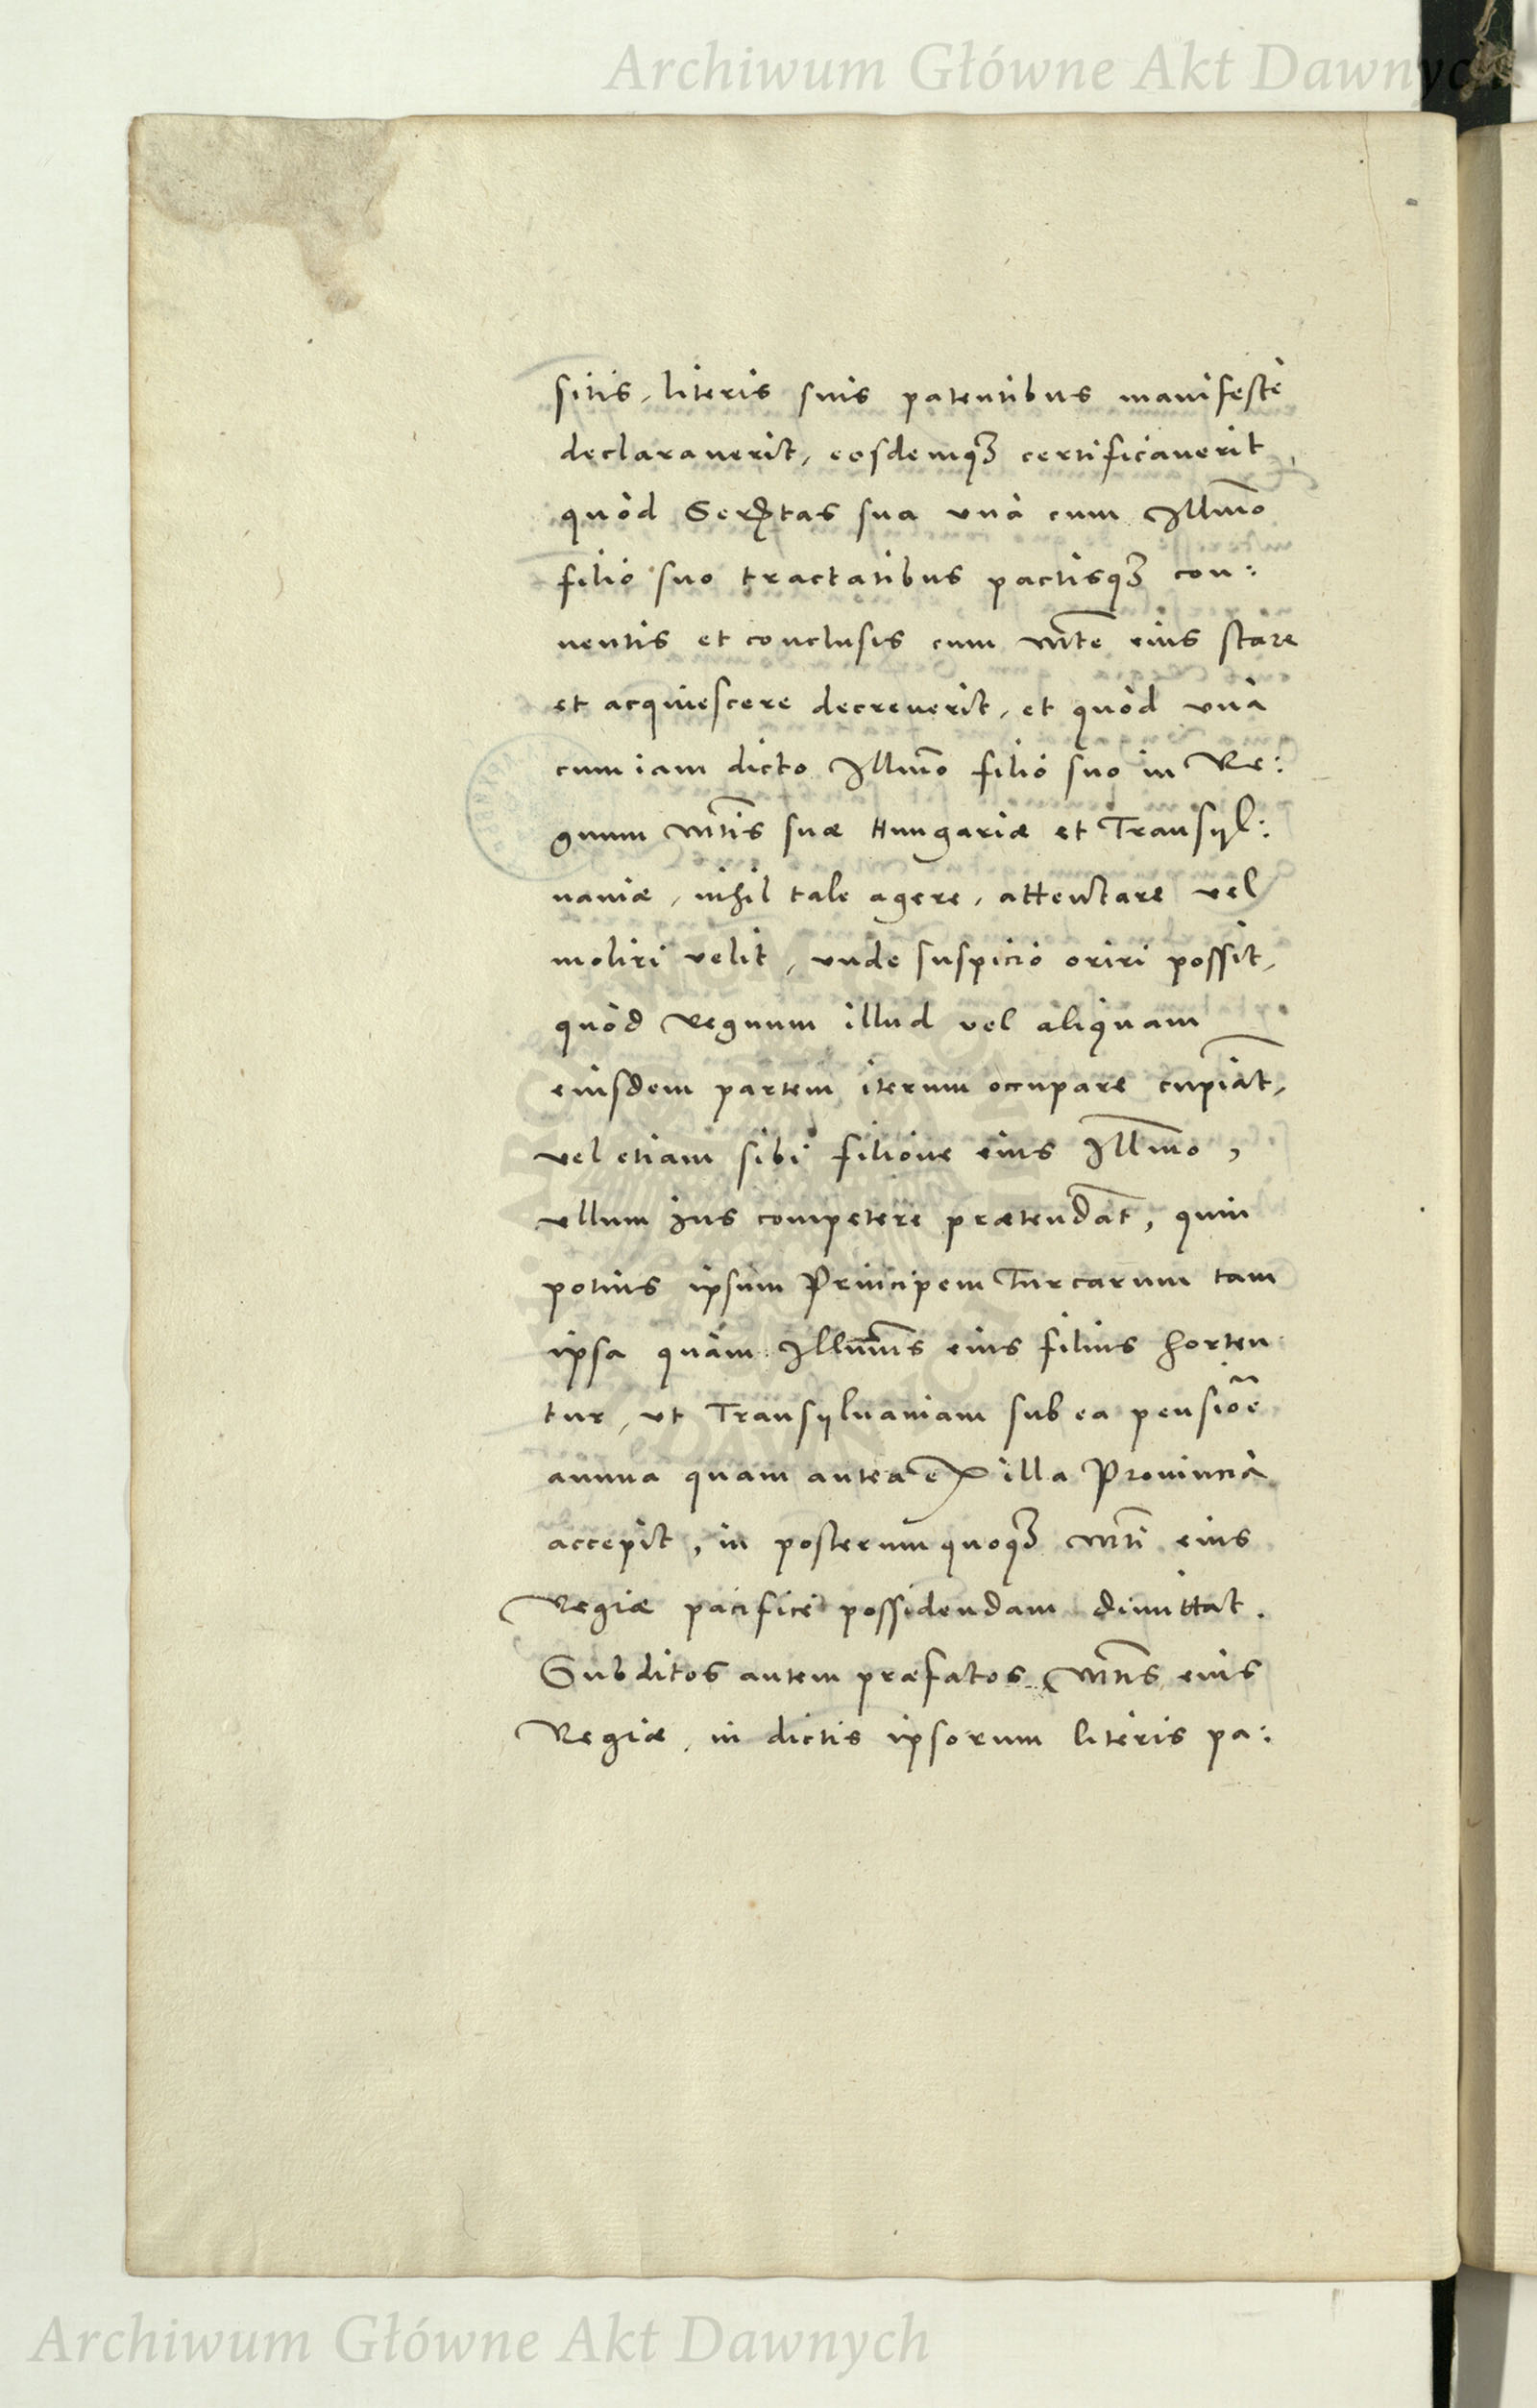 Archiwum Główne Akt Dawnych
sitis, literis suis patentibus manifestè
declarauerit, eosdemqꝫ certificauerit
quòd Serᵗᵗas sua vnà cum Illmo
filio suo tractatibus pactisqꝫ con:
uentis et conclusis cum Mte eius stare
et acquiescere decreuerit, et quòd vnà
cum iam dicto Illmo filio suo in Re:
gnum Mtis suæ Hungariæ et Transyl:
uaniæ, nihil tale agere, attentare vel
moliri velit, vnde suspicio oriri possit,
quòd Regnum illud vel aliquam
eiusdem partem iterum occupare cupiat,
vel etiam sibi filioue eius Illmo,
vllum ius competere prætendat, quin
potius ipsum Principem Turcarum tam
ipsa quàm Illmus eius filius horten
tur, vt Transyluaniam sub ea pensiõe
annua quam antea ex illa Prouincia
accepit, in posterum quoqꝫ Mti eius
Regiæ pacificè possidendam dimittat.
Subditos autem præfatos Mtis eius
Regiæ, in dictis ipsorum literis pa:
Archiwum Główne Akt Dawnych